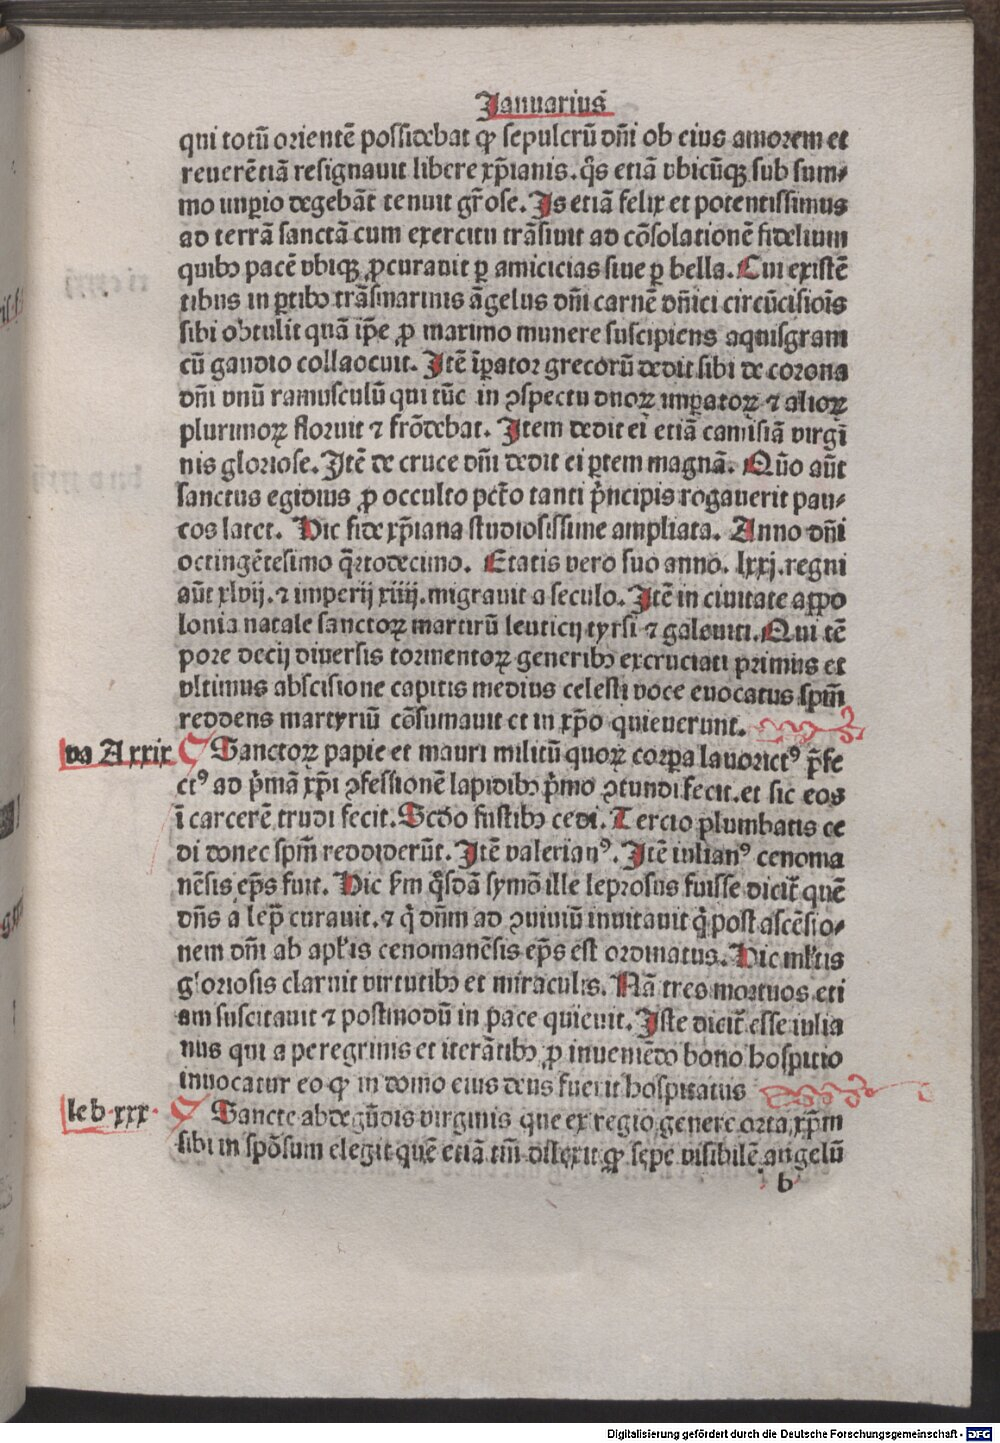 Januarius
qui totū orientē possidebat ꝙ sepulcrū dñi ob eius amorem et
reuerētiā resignauit libere xp̄ianis. q̄s etiā vbicūqꝫ sub sum⸗
mo imꝑio degebāt tenuit gr̄ose. Is etiā felix et potentissimus
ad terrā sanctā cum exercitu trāsiuit ad cōsolationē fidelium
quibꝰ pacē vbiqꝫ ꝓcurauit ꝑ amicicias siue ꝑ bella. Cui existē
tibus in ꝑtibꝰ trāsmarinis āgelus dñi carnē dñici circūcisiōis
sibi obtulit quā ip̄e ꝓ maximo munere suscipiens aquisgrani
cū gaudio collaocuit. Itē īꝑator grecorū dedit sibi de corona
dñi vnū ramusculū qui tūc in ꝯspectu duoꝝ imꝑatoꝝ ⁊ alioꝝ
plurimoꝝ floruit ⁊ frōdebat. Item dedit ei etiā camisiā virgī
nis gloriose. Itē de cruce dñi dedit ei ꝑtem magnā. Quō aūt
sanctus egidius ꝓ occulto pctō tanti p̄ncipis rogauerit pau⸗
cos latet. Hic fide xp̄iana studiosissime ampliata. Anno dñi
octingētesimo q̄rtodecimo. Etatis vero suo anno. lxxj. regni
aūt xlvij. ⁊ imperij xiiij. migrauit a seculo. Itē in ciuitate appo
lonia natale sanctoꝝ martirū leuticij tyrsi ⁊ galeuiti. Qui tē
pore decij diuersis tormentoꝝ generibꝰ excruciati primus et
vltimus abscisione capitis medius celesti voce euocatus spm̄
reddens martyriū cōsumauit et in xp̄o quieuerunt.
va A xxix Sanctoꝝ papie et mauri militū quoꝝ corꝑa lauorictꝰ p̄fe
ctꝰ ad p̄mā xp̄i ꝯfessionē lapidibꝰ p̄mo ꝯtundi fecit. et sic eos
ī carcerē trudi fecit. Scdo fustibꝰ cedi. Tercio plumbatis ce
di donec spm̄ reddiderūt. Itē valerianꝰ. Itē iulianꝰ cenoma
nēsis eps̄ fuit. Hic fm̄ q̄sdā symō ille leprosus fuisse dicit̄ quē
dñs a lep̄ curauit. ⁊ q̄ dñm ad ꝯuiuiū inuitauit q̄ post ascēsio⸗
nem dñi ab apl̄is cenomanēsis eps̄ est ordinatus. Hic ml̄tis
gloriosis claruit virtutibꝰ et miraculis. Nā tres mortuos eti
am suscitauit ⁊ postmodū in pace quieuit. Iste dicit̄ esse iulia
nus qui a peregrinis et iterātibꝰ ꝓ inueniēdo bono hospitio
inuocatur eo ꝙ in domo eius deus fuerit hospitatus
le b xxx Sancte abdegūdis virginis que ex regio genere orta, xp̄m
sibi in spōsum elegit quē etiā tm̄ dilexit ꝙ sepe visibilē angelū
b
Digitalisierung gefördert durch die Deutsche Forschungsgemeinschaft - DFG